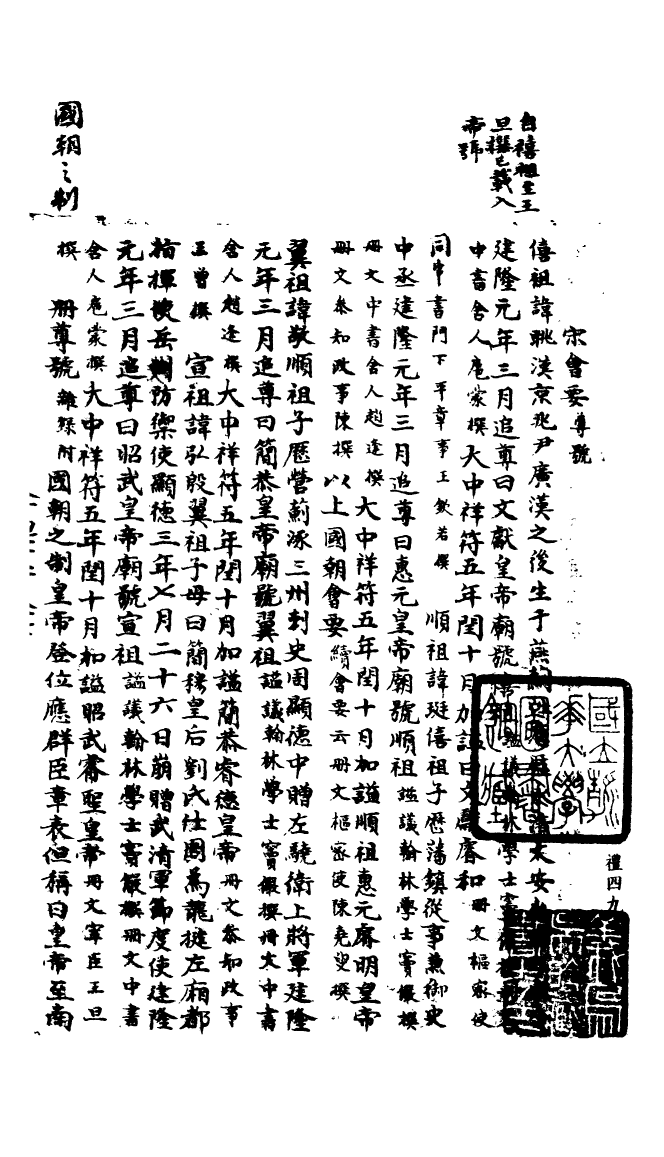 自僖祖至王
旦撰已載入
帝號
國朝之制
宋會要尊號
僖祖諱朓漢京兆尹廣漢之後生于燕
建隆元年三月追尊曰文獻皇帝廟號僖祖諡議翰林學士竇儼撰冊文
中書舍人扈蒙撰大中祥符五年閏十月加諡曰文獻睿和冊文樞密使
同中書門下平章事王欽若撰 順祖諱珽僖祖子歷藩鎮從事兼御史
中丞建隆元年三月追尊曰惠元皇帝廟號順祖諡議翰林學士竇儼撰
冊文中書舍人趙逢撰大中祥符五年閏十月加諡順祖惠元睿明皇帝
冊文參知政事陳撰以上國朝會要續會要云冊文樞密使陳堯叟撰
翼祖諱敬順祖子歷營薊涿三州刺史周顯德中贈左驍衛上將軍建隆
元年三月追尊曰簡恭皇帝廟號翼祖諡議翰林學士竇儼撰冊文中書
舍人趙逢撰大中祥符五年閏十月加諡簡恭睿德皇帝冊文參知政事
王曾撰 宣祖諱弘殷翼祖子母曰簡穆皇后劉氏仕周為龍捷左廂都
指揮使岳州防禦使顯德三年七月二十六日崩贈武清軍節度使建隆
元年三月追尊曰昭武皇帝廟號宣祖諡議翰林學士竇儼撰冊文中書
舍人扈蒙撰大中祥符五年閏十月加諡昭武睿聖皇帝冊文宰臣王旦
撰 冊尊號雜錄附國朝之制皇帝登位應群臣章表但稱曰皇帝至南
禮四九